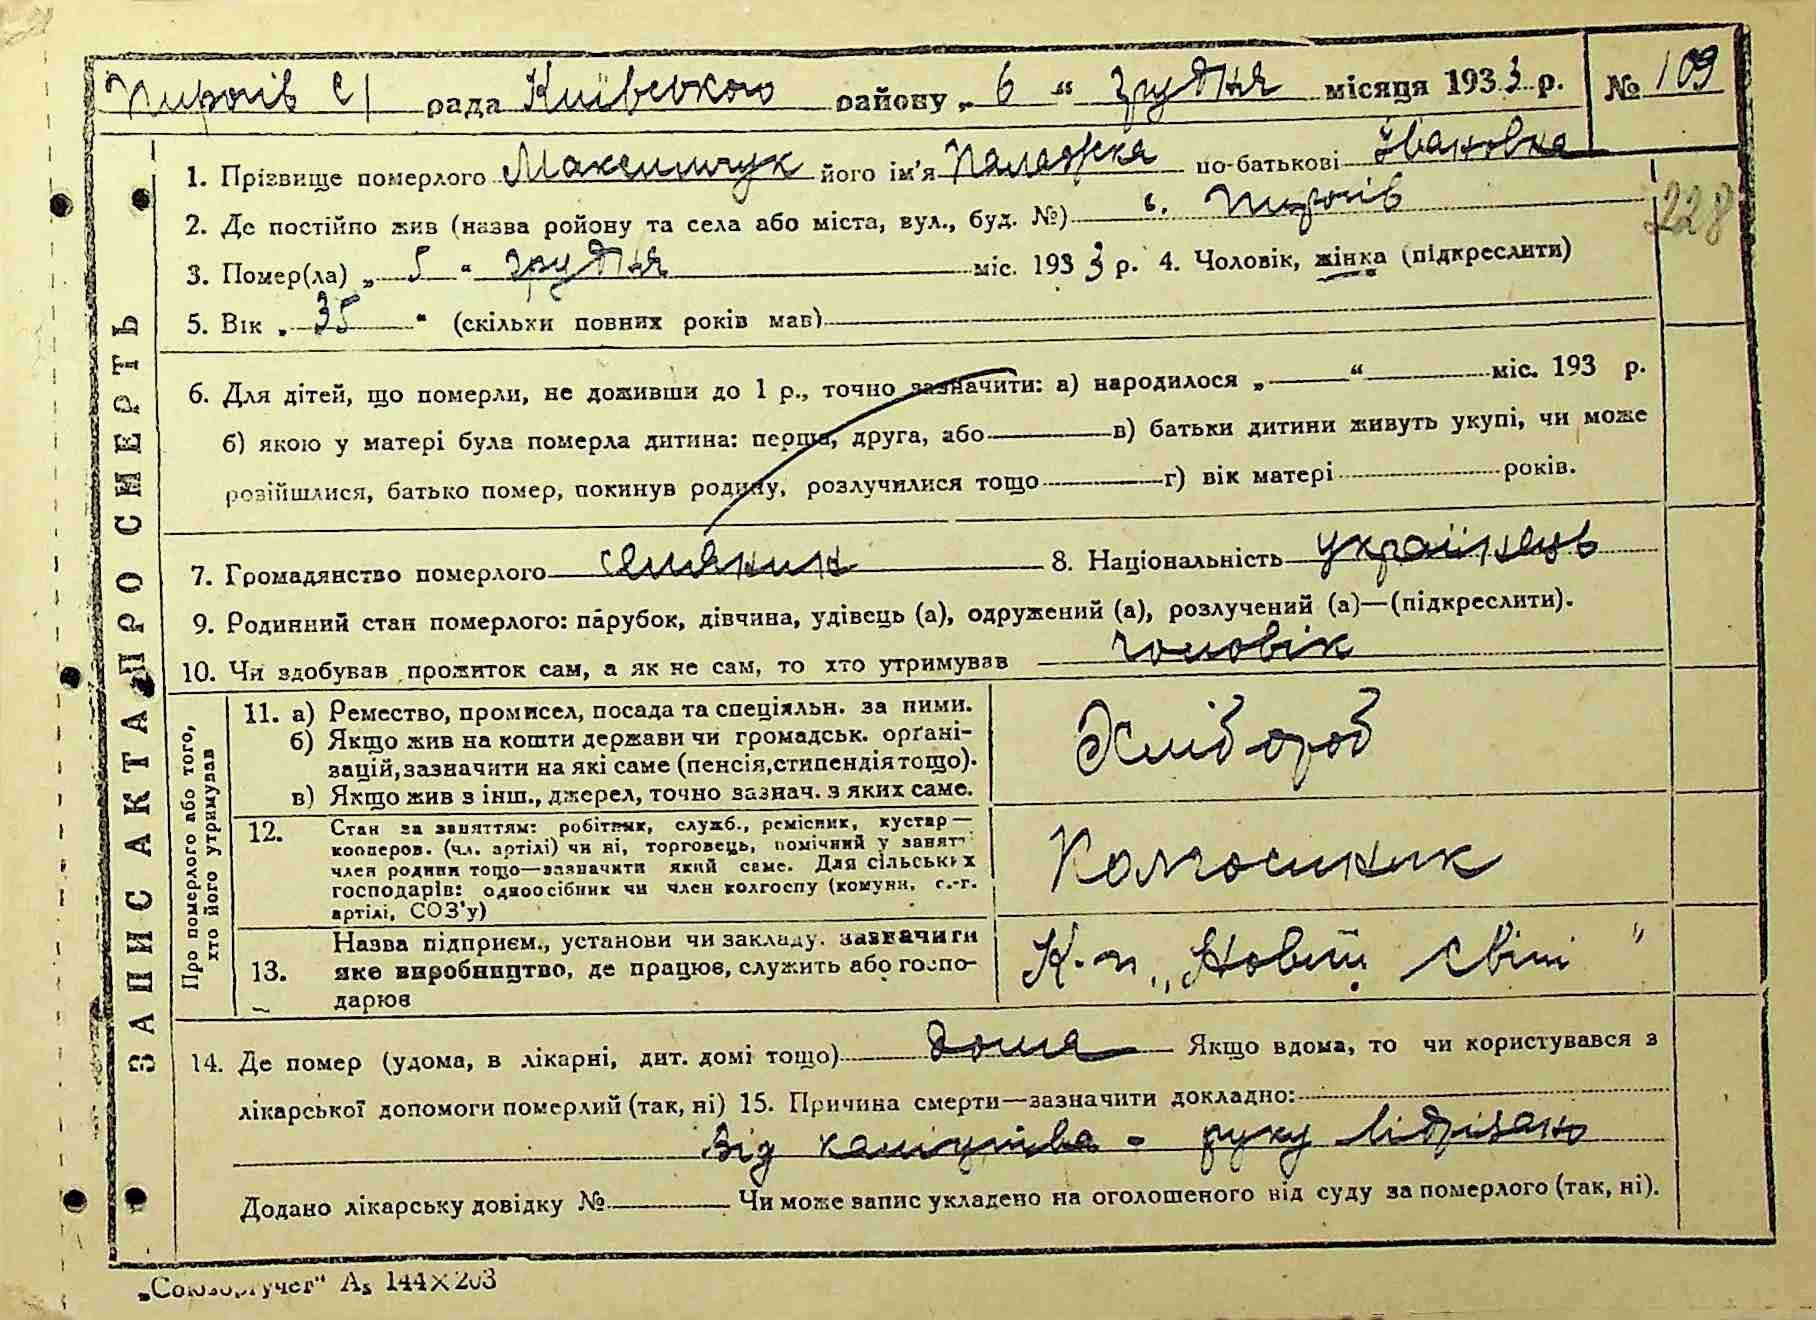 Пирогів с/ рада Київського району „ 6 “ грудня місяця 1933 р. № 109
1. Прізвище померлого Максимчук його ім'я Палажка по-батькові Івановна
2. Де постійно жив (назва ройону та села або міста, вул., буд. №) с. Пирогів
228
3. Помер(ла) „ 5 “ грудня міс. 1933 р. 4. Чоловік, жінка (підкреслити)
5. Вік „ 35 “ (скільки повних років мав)
6. Для дітей, що померли, не доживши до 1 р., точно зазначити: а) народилося „ “ міс. 193 р.
б) якою у матері була померла дитина: перша, друга, або в) батьки дитини живуть укупі, чи може
розійшлися, батько помер, покинув родину, розлучилися тощо г) вік матері років.
7. Громадянство померлого селяник 8. Національність українець
9. Родинний стан померлого: парубок, дівчина, удівець (а), одружений (а), розлучений (а)—(підкреслити).
10. Чи здобував прожиток сам, а як не сам, то хто утримував чоловік
ЗАПИС АКТА ПРО СМЕРТЬ
Про померлого або того, хто його утримував
11. а) Ремество, промисел, посада та спеціяльн. за ними.
б) Якщо жив на кошти держави чи громадськ. орґані-
зацій, зазначити на які саме (пенсія, стипендія тощо).
в) Якщо жив з інш., джерел, точно зазнач. з яких саме.
Хлібороб
12. Стан за заняттям: робітник, служб., ремісник, кустар—
кооперов. (чл. артілі) чи ні, торговець, помічний у занятт
член родини тощо—зазначити який саме. Для сільських
господарів: одноосібник чи член колгоспу (комуни, с.-г.
артілі, СОЗ'у)
Колгоспник
13. Назва підприєм., установи чи закладу. зазначити
яке виробництво, де працює, служить або госпо-
дарює
К-п „Новий світ"
14. Де помер (удома, в лікарні, дит. домі тощо) дома Якщо вдома, то чи користувався з
лікарської допомоги померлий (так, ні) 15. Причина смерти—зазначити докладно:
Від каліцтва - руку відрізано
Додано лікарську довідку № Чи може запис укладено на оголошеного від суду за померлого (так, ні).
„Союзоргучет" А₅ 144×203